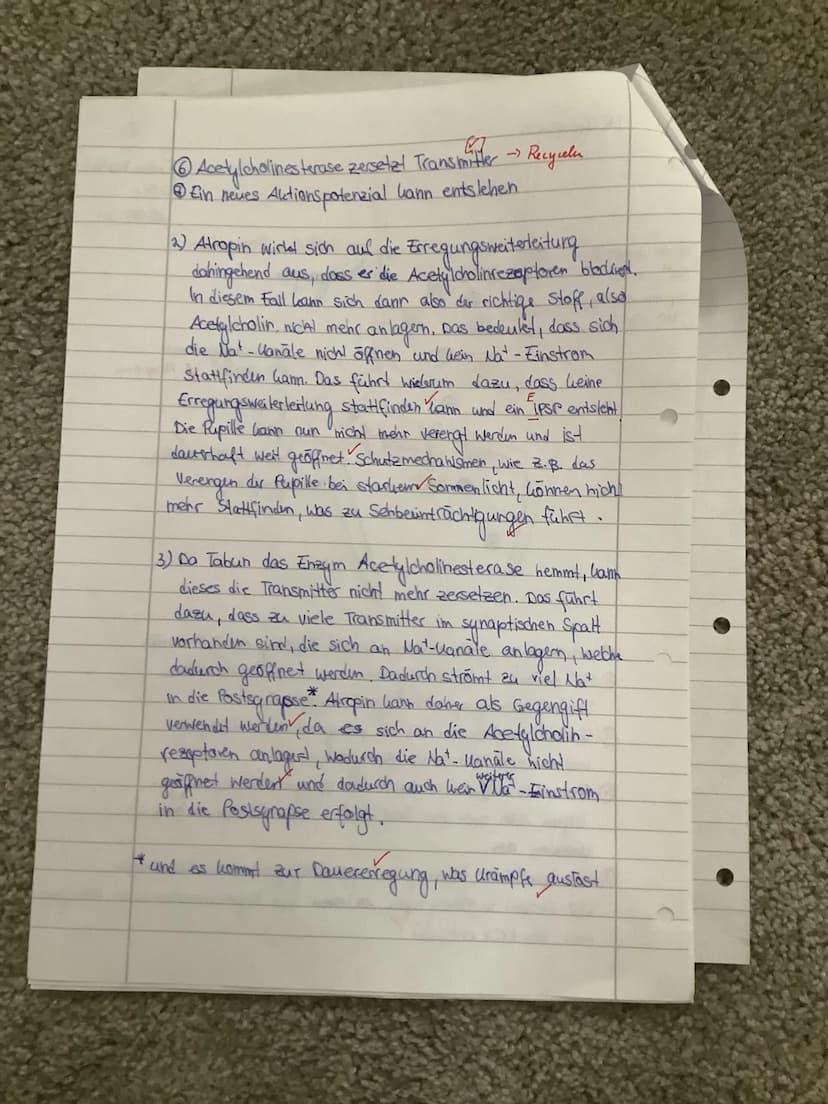 ⑥ Acetylcholinesterase zersetzt Transmitter → Recyceln
⑦ Ein neues Aktionspotenzial kann entstehen
2) Atropin wirkt sich auf die Erregungsweiterleitung
dahingehend aus, dass er die Acetylcholinrezeptoren blockiert.
In diesem Fall kann sich dann also der richtige Stoff, also
Acetylcholin, nicht mehr anlagern. Das bedeutet, dass sich
die Na⁺-Kanäle nicht öffnen und kein Na⁺-Einstrom
stattfinden kann. Das führt wiederum dazu, dass keine
E
Erregungsweiterleitung stattfinden kann und ein IPSP entsteht
Die Pupille kann nun nicht mehr verengt werden und ist
dauerhaft weit geöffnet. Schutzmechanismen, wie z.B. das
Verengen der Pupille bei starkem Sonnenlicht, können nicht
mehr stattfinden, was zu Sehbeeinträchtigungen führt.
3) Da Tabun das Enzym Acetylcholinesterase hemmt, kann
dieses die Transmitter nicht mehr zersetzen. Das führt
dazu, dass zu viele Transmitter im synaptischen Spalt
vorhanden sind, die sich an Na⁺-Kanäle anlagern, welche
dadurch geöffnet werden. Dadurch strömt zu viel Na⁺
in die Postsynapse*. Atropin kann daher als Gegengift
verwendet werden, da es sich an die Acetylcholin-
rezeptoren anlagert, wodurch die Na⁺-Kanäle nicht
geöffnet werden und dadurch auch kein weiterer Na⁺-Einstrom
in die Postsynapse erfolgt.
* und es kommt zur Dauererregung, was Krämpfe auslöst